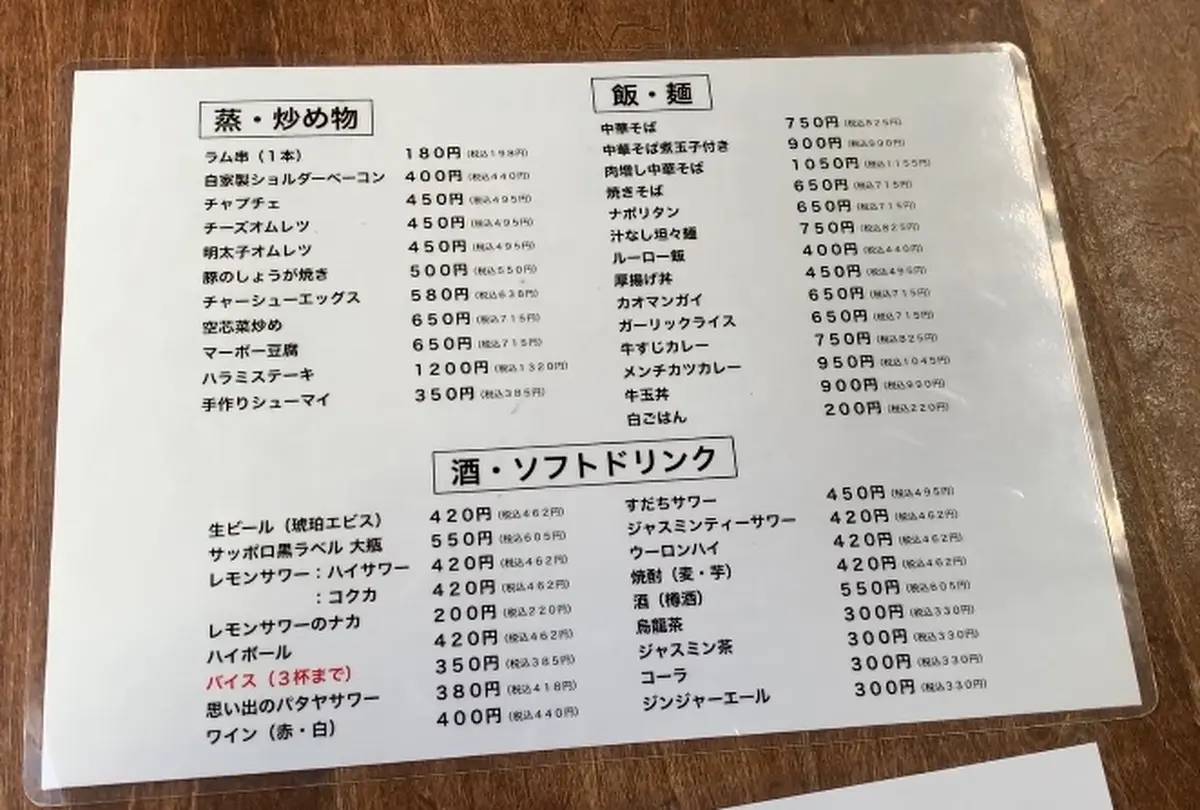 蒸・炒め物
ラム串（１本） 180円（税込198円）
自家製ショルダーベーコン 400円（税込440円）
チャプチェ 450円（税込495円）
チーズオムレツ 450円（税込495円）
明太子オムレツ 450円（税込495円）
豚のしょうが焼き 500円（税込550円）
チャーシューエッグス 580円（税込638円）
空芯菜炒め 650円（税込715円）
マーボー豆腐 650円（税込715円）
ハラミステーキ 1200円（税込1320円）
手作りシューマイ 350円（税込385円）
飯・麺
中華そば 750円（税込825円）
中華そば煮玉子付き 900円（税込990円）
肉増し中華そば 1050円（税込1155円）
焼きそば 650円（税込715円）
ナポリタン 650円（税込715円）
汁なし坦々麺 750円（税込825円）
ルーロー飯 400円（税込440円）
厚揚げ丼 450円（税込495円）
カオマンガイ 650円（税込715円）
ガーリックライス 650円（税込715円）
牛すじカレー 750円（税込825円）
メンチカツカレー 950円（税込1045円）
牛玉丼 900円（税込990円）
白ごはん 200円（税込220円）
酒・ソフトドリンク
生ビール（琥珀エビス） 420円（税込462円）
サッポロ黒ラベル 大瓶 550円（税込605円）
レモンサワー：ハイサワー 420円（税込462円）
：コクカ 420円（税込462円）
レモンサワーのナカ 200円（税込220円）
ハイボール 420円（税込462円）
バイス（３杯まで） 350円（税込385円）
思い出のパタヤサワー 380円（税込418円）
ワイン（赤・白） 400円（税込440円）
すだちサワー 450円（税込495円）
ジャスミンティーサワー 420円（税込462円）
ウーロンハイ 420円（税込462円）
焼酎（麦・芋） 420円（税込462円）
酒（樽酒） 550円（税込605円）
烏龍茶 300円（税込330円）
ジャスミン茶 300円（税込330円）
コーラ 300円（税込330円）
ジンジャーエール 300円（税込330円）